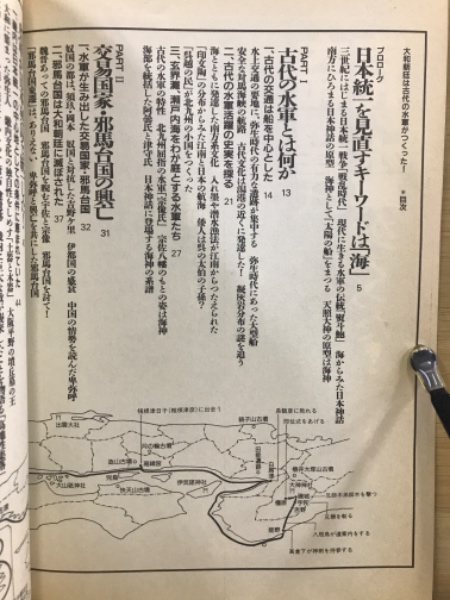 大和朝廷は古代の水軍がつくった! ＊目次
プロローグ
日本統一を見直すキーワードは「海」 5
三世紀にはじまる日本統一戦争「戦乱時代」 現代に生きる水軍の伝統「熨斗鮑」 海からみた日本神話
南方にひろまる日本神話の原型 海神として「太陽の船」をまつる 天照大神の原型は海神
PART Ⅰ
古代の水軍とは何か 13
一、古代の交通は船を中心とした 14
水上交通の要地に、弥生時代の有力な遺跡が集中する 弥生時代にあった大型船
安全な対馬海峡の航路 古代文化は湯港の近くに発達した! 凝灰岩分布の謎を追う
二、古代の水軍活躍の史実を探る 21
海とともに発達した南方系文化 入れ墨や潜水漁法が江南からつたえられた
「印文陶」の分布からみた江南と日本の航海 倭人は呉の太伯の子孫?
「呉越の民」が北九州の小国をつくった
三、玄界灘、瀬戸内海をわが庭とする水軍たち 27
古代の水軍の特性 北九州屈指の水軍「宗像氏」 宗佐八幡のもとの姿は海神
海部を統括した阿曇氏と津守氏 日本神話に登場する海神の系譜
PART Ⅱ
交易国家・邪馬台国の興亡 31
一、水軍が生み出した交易国家・邪馬台国 32
奴国の都は、須玖・岡本 奴国と対立した吉野ケ里 伊都国の盛衰 中国の情勢を読んだ卑弥呼
二、邪馬台国は大和朝廷に滅ぼされた 37
魏晋あっての邪馬台国 邪馬台国を睨む宇佐と宗像 邪馬台国を討て!
「邪馬台国東遷」は、ありえない 卑弥呼と興亡を共にした邪馬台国
出雲大社
大山祇神社
造山古墳
月の輪古墳
高嶋宮
熊野
伊弉諾神宮
橿原
吉野
八咫烏が道案内をする
高倉下が神剣を持参する